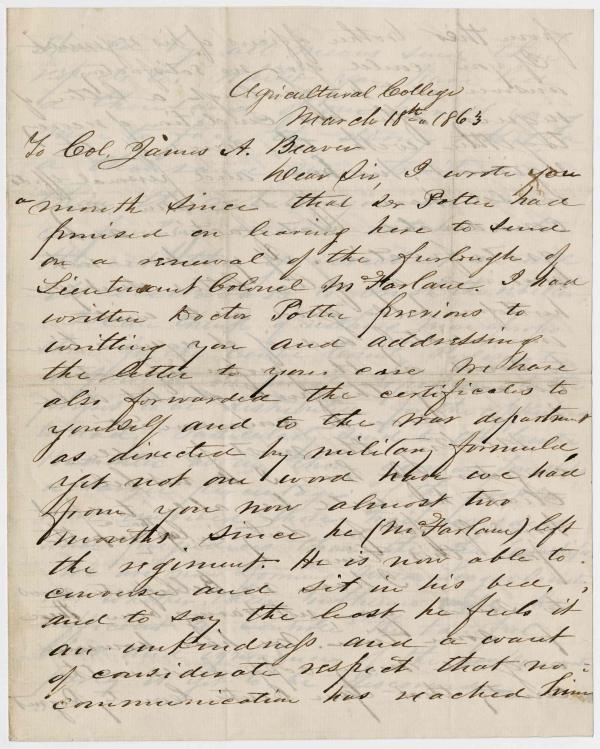 Agricultural College
March 18th 1863
To Col. James A. Beaver
Dear Sir, I wrote you
a month since that Dr Potter had
promised on leaving here to send
on a renewal of the furlough of
Lieutenant Colonel McFarlane. I had
written Doctor Potter previous to
writting you and addressing
the letter to your care We have
also forwarded the certificates to
yourself and to the war department
as directed by military formula,
yet not one word have we had
from you now almost two
months since he (McFarlane) left
the regiment. He is now able to
converse and sit in his bed,
and to say the least he feels it
an unkindness and a want
of considerate respect that no
communication has reached him